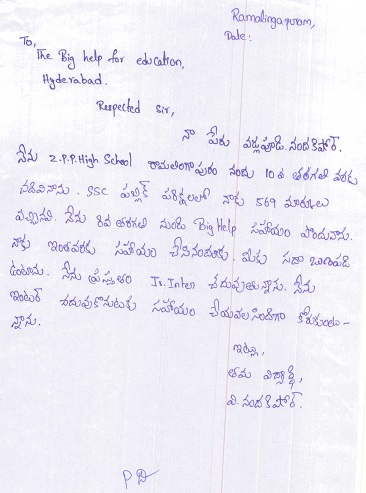 Ramalingapuram,
Date:
To,
The Big help for education,
Hyderabad.
Respected Sir,
నా పేరు వర్లపూడి. నందకిషోర్.
నేను Z.P.P.High School రామలింగాపురం నందు 10వ తరగతి వరకు
చదివినాను. SSC పబ్లిక్ పరీక్షలలో నాకు 569 మార్కులు
వచ్చినవి. నేను 8వ తరగతి నుండి Big Help సహాయం పొందినాను.
నాకు ఇంతవరకు సహాయం చేసినందుకు. మీకు సదా ఋణపడి
ఉంటాను. నేను ప్రస్తుతం Jr. Inter చదువుతున్నాను. నేను
ఇంటర్ చదువుకొనుటకు సహాయం చేయవలసిందిగా కోరుకుంటు-
న్నాను.
ఇట్లు,
తమ విద్యార్థి,
వి. నందకిషోర్.